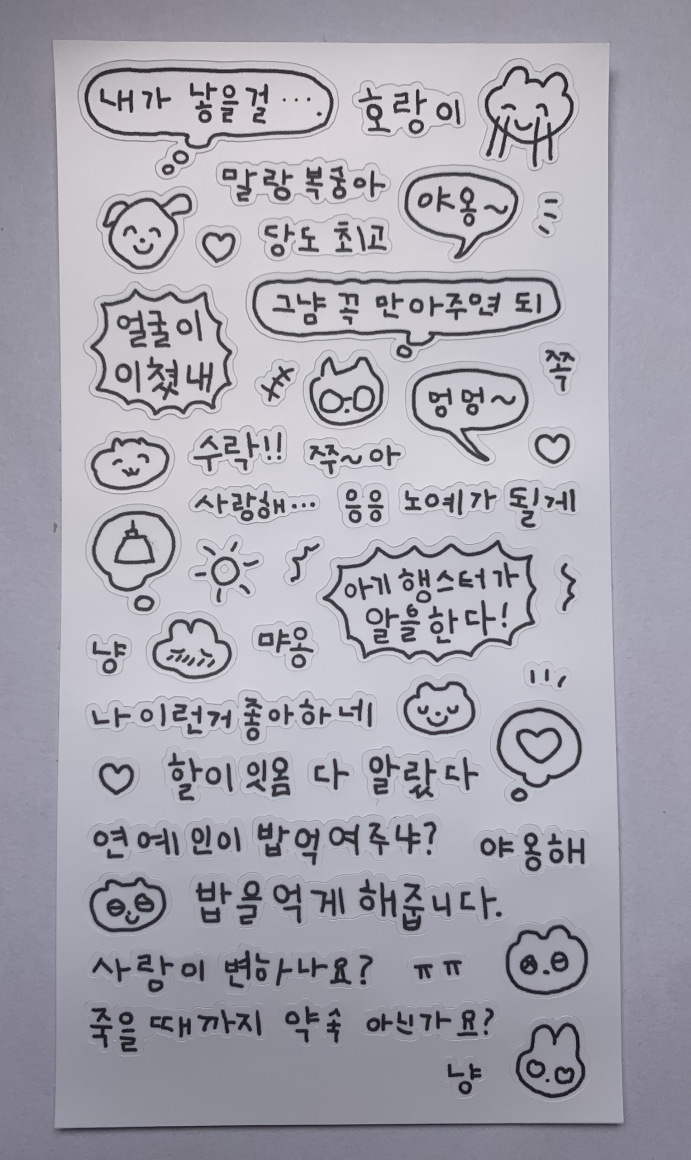 내가 낳을걸 ....
호랑이
말랑 복숭아
야옹~
당도 최고
그냥 꼭 안아주면 되
얼굴이
이쪘내
쪽
멍멍~
수락!!
쭈~아
사랑해...
응응
노예가 될게
아기 햄스터가
알을한다!
냥
먀옹
나 이런거 좋아하네
할이 잇옴
다 알랐다
연예인이 밥먹여주냐?
야옹해
밥을먹게 해줍니다.
사람이 변하나요?
ㅠㅠ
죽을때까지 약속 아닌가요?
냥